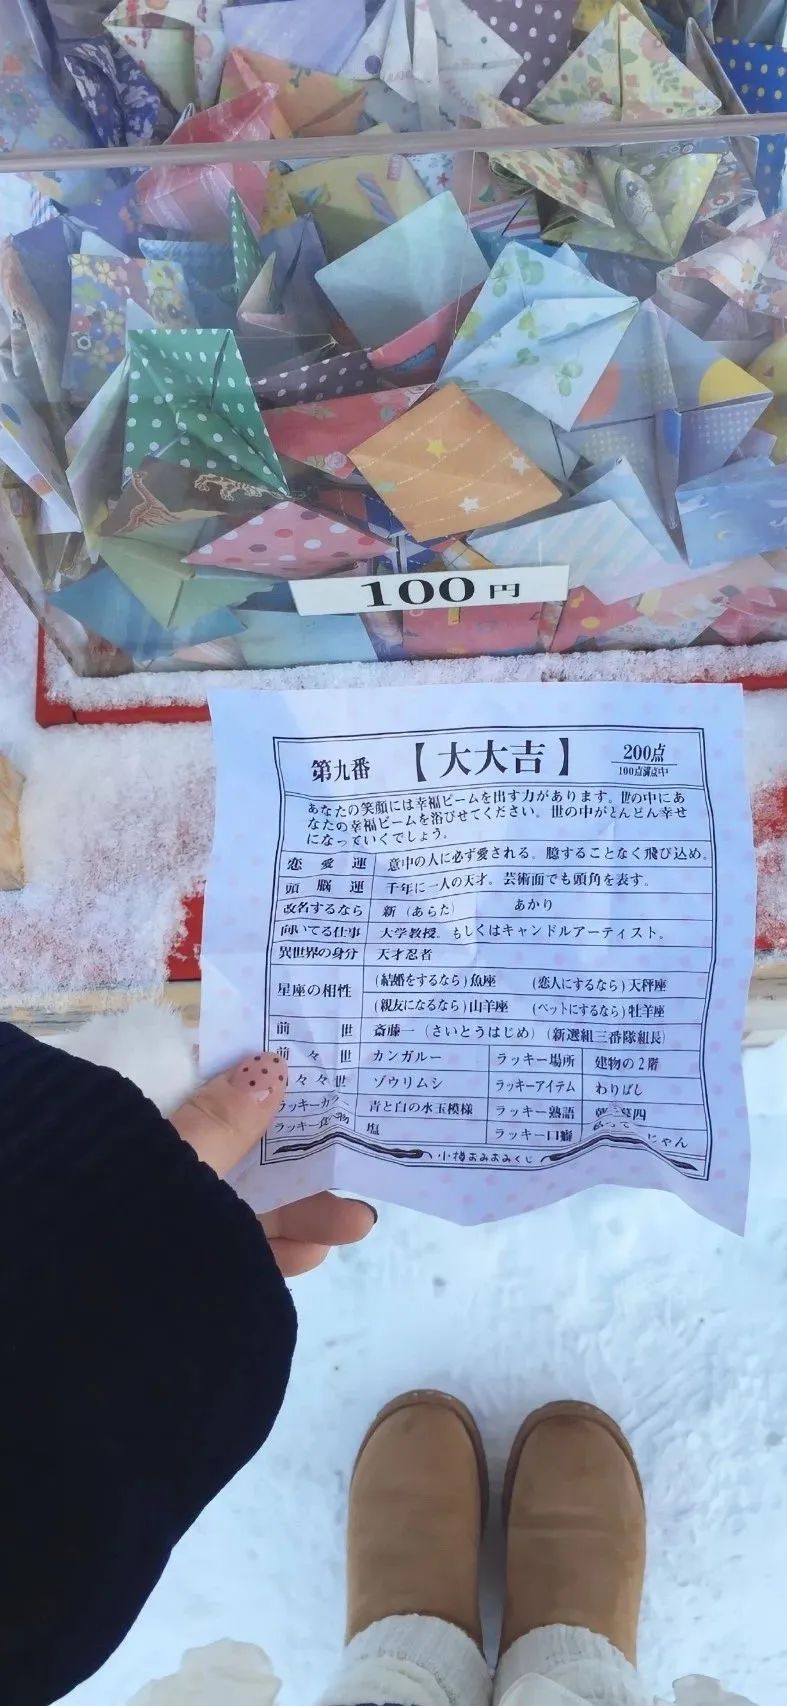 100円
第九番 【大大吉】 200点
100点満点中
あなたの笑顔には幸福ビームを出す力があります。世の中にあ
なたの幸福ビームを浴びせてください。世の中がどんどん幸せ
になっていくでしょう。
恋愛運 意中の人に必ず愛される。臆することなく飛び込め。
頭脳運 千年に一人の天才。芸術面でも頭角を表す。
改名するなら 新（あらた） あかり
向いてる仕事 大学教授。もしくはキャンドルアーティスト。
異世界の身分 天才忍者
星座の相性 (結婚をするなら)魚座 (恋人にするなら)天秤座
(親友になるなら)山羊座 (ペットにするなら)牡羊座
前世 斎藤一（さいとうはじめ）（新選組三番隊組長）
前々世 カンガルー ラッキー場所 建物の2階
々々世 ゾウリムシ ラッキーアイテム わりばし
ラッキーカラー 青と白の水玉模様 ラッキー熟語 朝三暮四
ラッキー食べ物 塩 ラッキー口癖 じゃん
小樽あみあみくじ